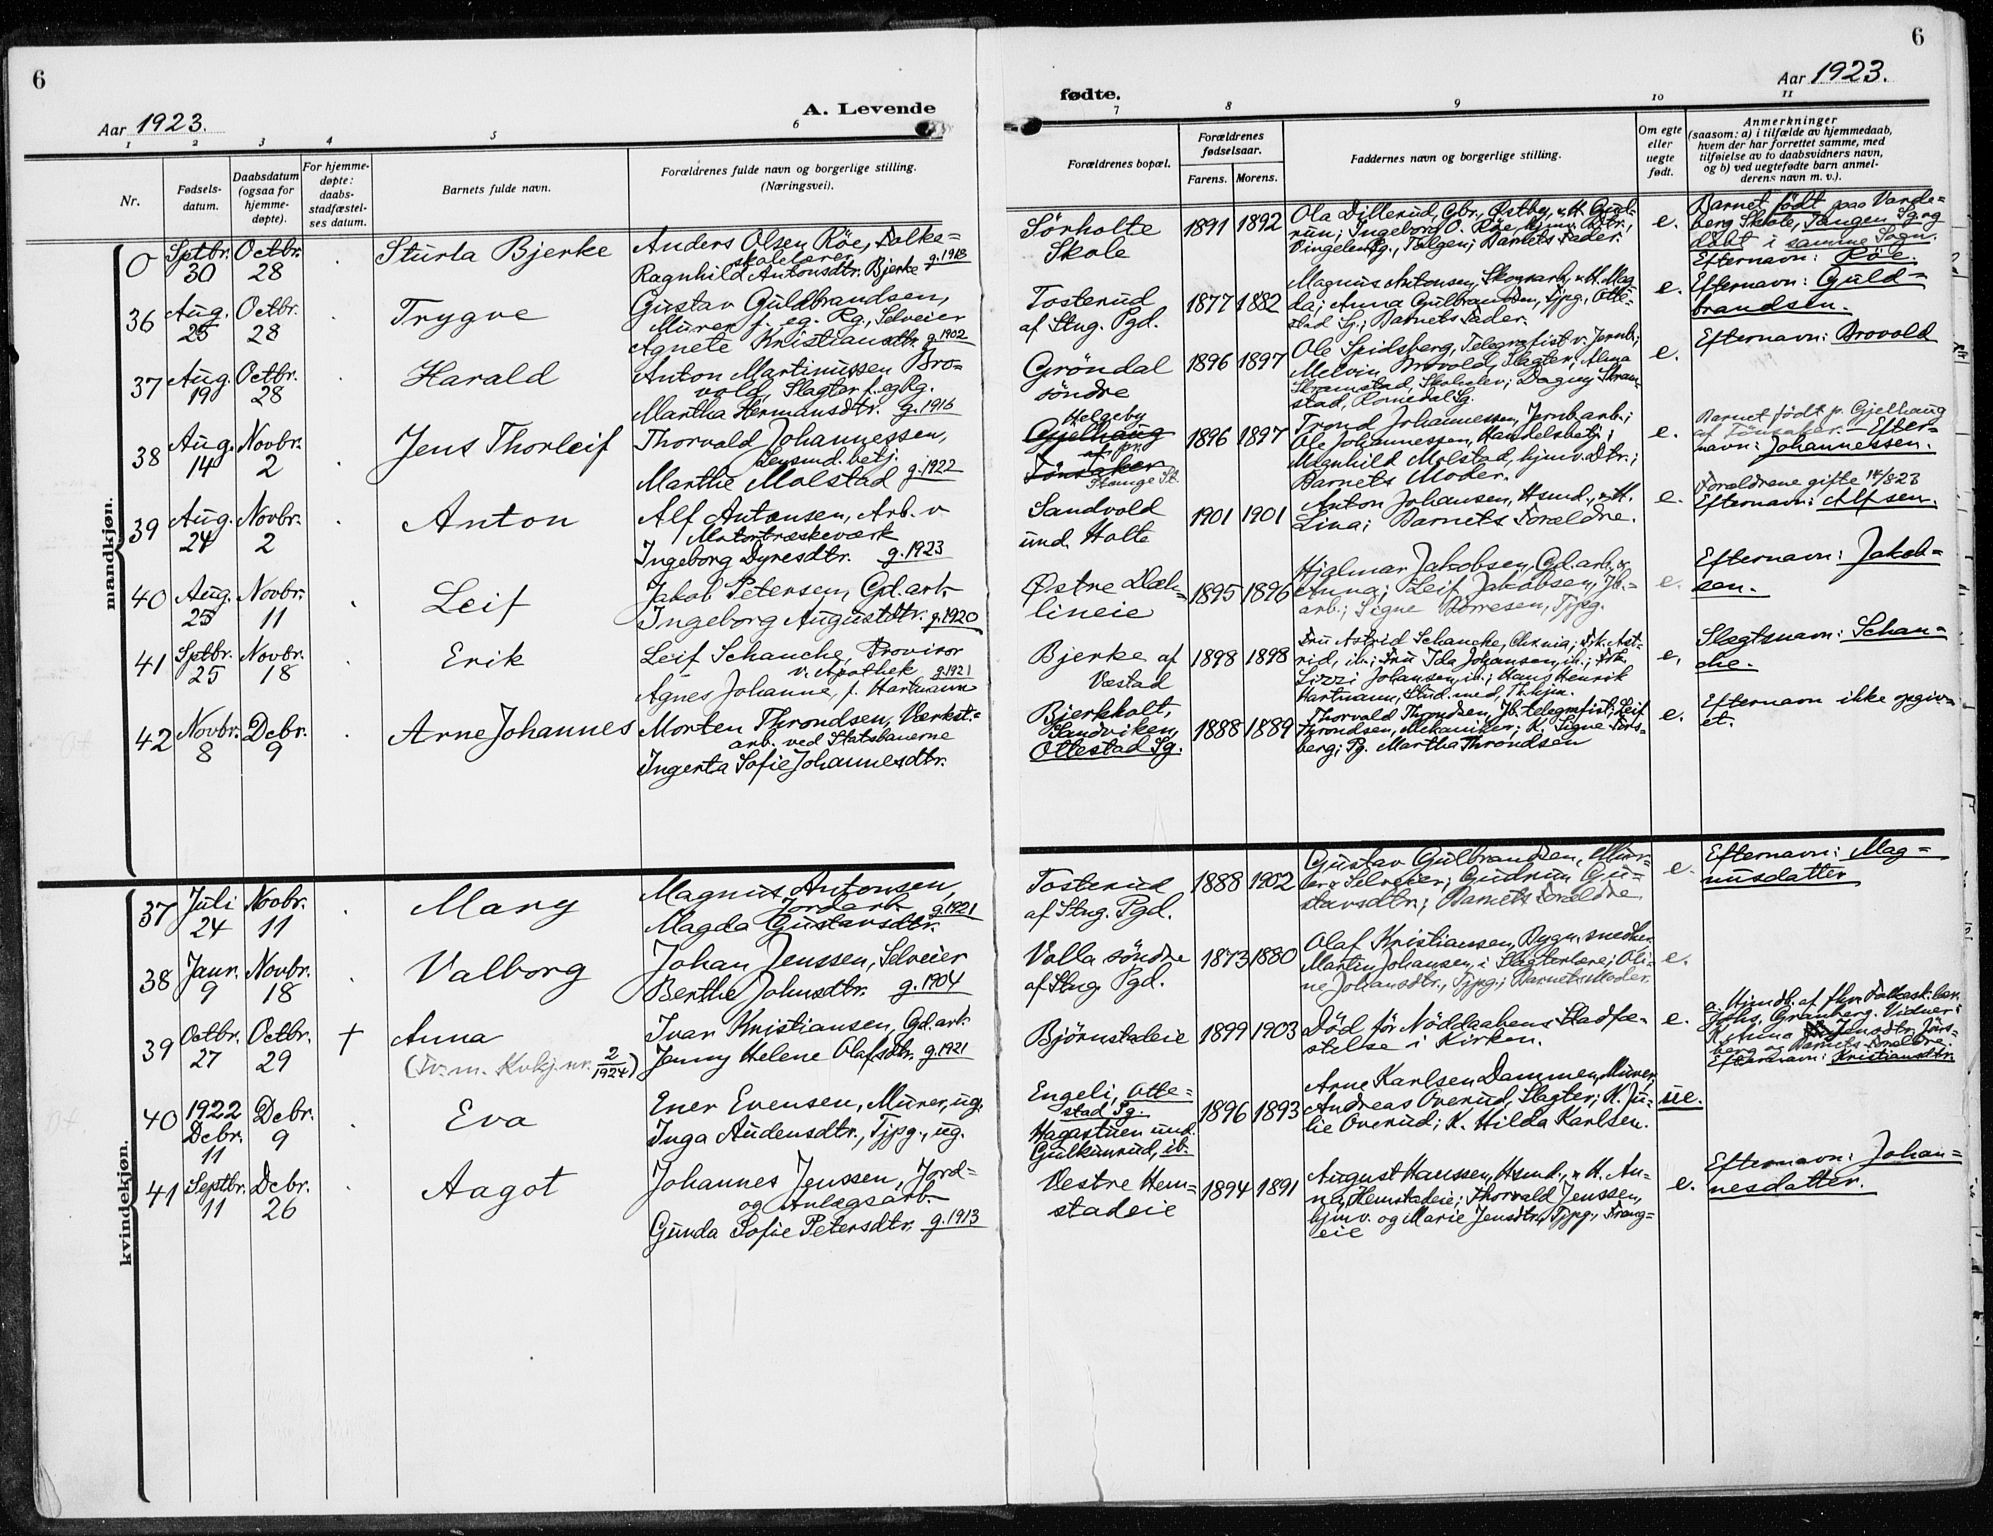 6
6
Aar 1923.
A. Levende
fødte.
Aar 1923.
1 2 3 4 5 6 7 8 9 10 11
Nr.
Fødsels-
datum.
Daabsdatum
(ogsaa for
hjemme-
døpte).
For hjemme-
døpte:
daabs-
stadfæstel-
ses datum.
Barnets fulde navn.
Forældrenes fulde navn og borgerlige stilling.
(Næringsvei).
Forældrenes bopæl.
Forældrenes
fødselsaar.
Farens. Morens.
Faddernes navn og borgerlige stilling.
Om egte
eller
uegte
født.
Anmerkninger
(saasom: a) i tilfælde av hjemmedaab,
hvem der har forrettet samme, med
tilføielse av to daabsvidners navn,
og b) ved uegtefødte barn anmel-
derens navn m. v.).
mandkjøn.
0
Sptbr.
30
Octbr.
28
Sturla Bjerke
Anders Olsen Røe, Folke-
skolelærer
Ragnhild Antonsdtr. Bjerke g. 1918
Sörholte
Skole
1891 1892
Ola Dillerud, Gbr., Østby, v. H. Gud-
run; Ingeborg O. Röe, hjmv. Dtr.,
Vingelen Sg., Tolgen; Barnets Fader.
e.
Barnet født paa Varde-
berg Skole, Tangen Sg og
döbt i samme Sogn.
Efternavn: Röe.
36
Aug.
25
Octbr.
28
Trygve
Gustav Guldbrandsen,
Murer f. eg. Rg., Selveier
Agnete Kristiansdtr. g. 1902
Tosterud
af Stng. Pgd.
1877 1882
Magnus Antonsen, Skogsarb., v. H. Mag
da; Anna Gulbrandsen, Tjpg., Otte-
stad Sg.; Barnets Fader.
e.
Efternavn: Guld-
brandsen.
37
Aug.
19
Octbr.
28
Harald
Anton Martinussen Bro-
vold, Slagter f. eg Rg.
Martha Hermansdtr. g. 1916
Gröndal
söndre
1896 1897
Ole Spidsberg, Telegrafist v. Jernb.;
Melvin Brovold, Slagter; Alma
Skramstad, Skoleelev; Dagny Skram-
stad, Romedal Sg.
e.
Efternavn: Brovold
38
Aug.
14
Novbr.
2
Jens Thorleif
Thorvald Johannessen,
Lensmd. betj.
Marthe Molstad g. 1922
Helgeby
Gjelhaug
af pr.
Tönsaker
Stange St.
1896 1897
Trond Johannessen, Jernb. arb.;
Ole Johannessen, Handelsbetj.;
Magnhild Molstad, hjmv. Dtr.;
Barnets Moder.
e.
Barnet födt p. Gjelhaug
af Tönsaker. Efter-
navn: Johannessen.
39
Aug.
24
Novbr.
2
Anton
Alf Antonsen, Arb. v
Motortræskeværk
Ingeborg Dyresdtr. g. 1923
Sandvold
und. Holte
1901 1901
Anton Johansen, Hsmd., v. H.
Lina; Barnets Forældre.
e.
Forældrene gifte 14/8 23
Efternavn: Alfsen.
40
Aug.
25
Novbr.
11
Leif
Jakob Petersen, Gd. arb.
Ingeborg Augustdtr. g. 1920
Østre Dæh-
lineie
1895 1896
Hjalmar Jakobsen, Gd. arb. v.
Anna; Leif Jakobsen, Jb.-
arb.; Signe Borresen, Tjpg.
e.
Efternavn: Jakob-
sen.
41
Sptbr.
25
Novbr.
18
Erik
Leif Schanche, Provisor
v. Apothek g. 1921
Agnes Johanne, f. Hartmann
Bjerke af
Væstad
1898 1898
Fru Astrid Schanche, Chr.nia; Frk. Ast-
rid, ib.; Fru Ida Johansen, ib.; Frk.
Lizzi Johansen, ib.; Hans Henrik
Hartmann, Stud. med., Trhjm.
e.
Slegtsnavn: Schan-
che.
42
Novbr.
8
Debr.
9
Arne Johannes
Morten Throndsen, Værkst.-
arb. ved Statsbanerne
Ingerta Sofie Johannesdtr.
Bjerkholt,
Sandviken,
Ottestad Sg.
1888 1889
Thorvald Throndsen, Jb. telegrafist; Leif
Throndsen, Mekaniker; K. Signe Fors-
berg; Pg. Martha Throndsen
e.
Efternavn ikke opgiv-
et.
kvindekjøn.
37
Juli
24
Novbr.
11
Mary
Magnus Antonsen
Jordarb.
Magda Gustavsdtr. g. 1921
Tosterud
af Stng. Pgd.
1888 1902
Gustav Gulbrandsen, Mur-
er & Selveier; Gudrun Gu-
stavsdtr.; Barnets Forældre
e.
Efternavn: Mag-
nusdatter
38
Janr.
9
Novbr.
18
Valborg
Johan Jenssen, Selveier
Berthe Johnsdtr. g. 1904
Volla söndre
af Stng. Pgd.
1873 1880
Olaf Kristiansen, Bygn. snedker
Martin Johansen, i Slagterlære; Oli-
ne Johansdtr., Tjpg.; Barnets Moder.
e.
39
Octbr.
27
Octbr.
29
+
Anna
(Tv. m. Kvkj. nr. 2/1924)
Ivar Kristiansen, Gd. arb.
Jenny Helene Olafsdtr. g. 1921
Björnstadeie
1899 1903
Död för Nöddaabens Stadfæ-
stelse i Kirken.
e.
a. Hjmdb. af fhv. Folkesk. lær.
Johs. Granberg. Vidner:
K. Anna Jensdtr. Jörs-
berg og Barnets Forældre.
Efternavn: Kristiansdtr.
40
1922
Debr.
11
Debr.
9
Eva
Ener Evensen, Murer, ug.
Inga Audensdtr., Tjpg., ug.
Engeli, Otte-
stad Sg.
Hagastuen und.
Gulkinrud, ib.
1896 1893
Arne Karlsen Dammen, Murer,
Andreas Overud, Slagter; K. Ju-
lie Overud; K. Hilda Karlsen.
ue.
41
Septbr.
11
Debr.
26
Aagot
Johannes Jenssen, Jord-
og Anlægsarb.
Gunda Sofie Petersdtr. g. 1913
Vestre Hem-
stadeie
1894 1891
August Hanssen, Hsmd., v. H. An-
na, Hemstadeie; Thorvald Jenssen,
hjmv. og Marie Jensdtr., Tjpg., Frang-
eie
e.
Efternavn: Johan-
nesdatter.